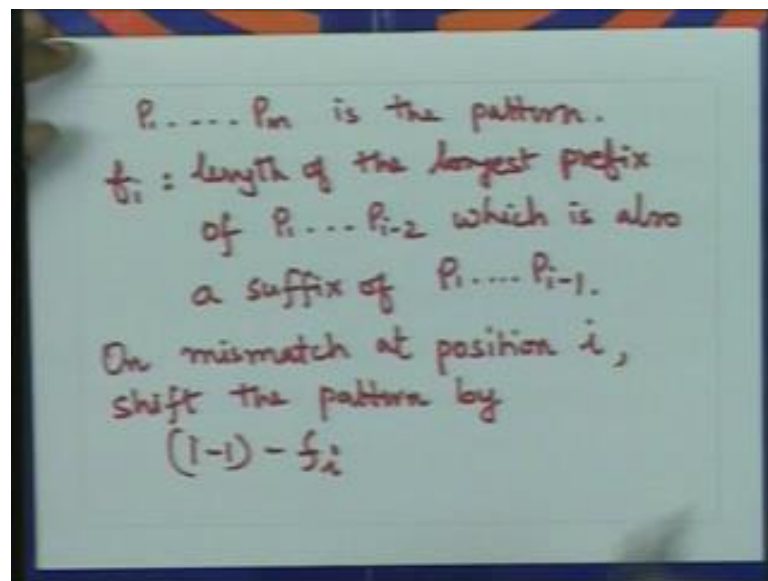 P₁.....Pₘ is the pattern.
fᵢ : length of the longest prefix
of P₁....Pᵢ₋₂ which is also
a suffix of P₁.....Pᵢ₋₁.
On mismatch at position i,
shift the pattern by
(i-1) - fᵢ